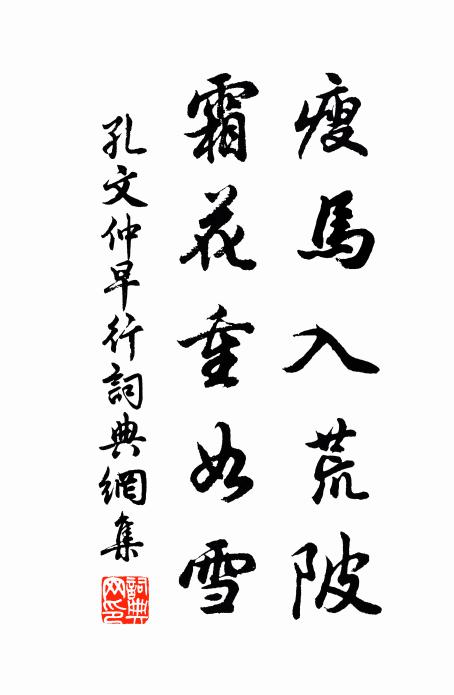 瘦馬入荒陂
霜花重如雪
孔文仲早行詞典網集
詞典網印